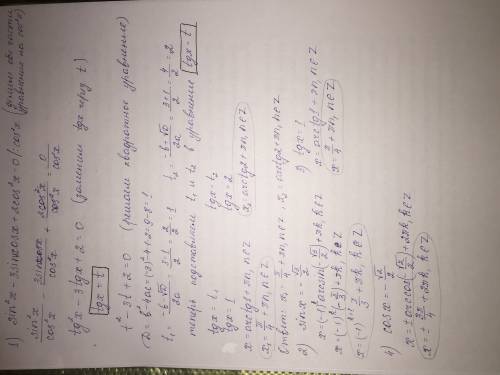 1) sin²x - 3sinxcosx + 2cos²x = 0 /:cos²x (делим обе части уравнения на cos²x)
sin²x/cos²x - 3sinxcosx/cos²x + 2cos²x/cos²x = 0/cos²x
tg²x - 3tgx + 2 = 0 (заменим tgx через t)
tgx = t
t² - 3t + 2 = 0 (решаем квадратное уравнение)
D = b² - 4ac = (-3)² - 4·1·2 = 9 - 8 = 1
t₁ = (-b - √D)/2a = (3 - 1)/2 = 2/2 = 1 t₂ = (-b + √D)/2a = (3 + 1)/2 = 4/2 = 2
теперь подставим t₁ и t₂ в уравнение tgx = t
tgx = t₁ tgx = t₂
tgx = 1 tgx = 2
x = arctg1 + πn, n∈Z x₂ = arctg2 + πn, n∈Z
x₁ = π/4 + πn, n∈Z
Ответ: x₁ = π/4 + πn, n∈Z x₂ = arctg2 + πn, n∈Z
2) sinx = -√3/2 3) tgx = 1
x = (-1)ᵏ arcsin(-√3/2) + πk, k∈Z x = arctg1 + πn, n∈Z
x = (-1)ᵏ(-π/3) + πk, k∈Z x = π/4 + πn, n∈Z
x = (-1)ᵏ⁺¹ π/3 + πk, k∈Z
4) cosx = -√2/2
x = ± arccos(-√2/2) + 2πk, k∈Z
x = ± 3π/4 + 2πk, k∈Z